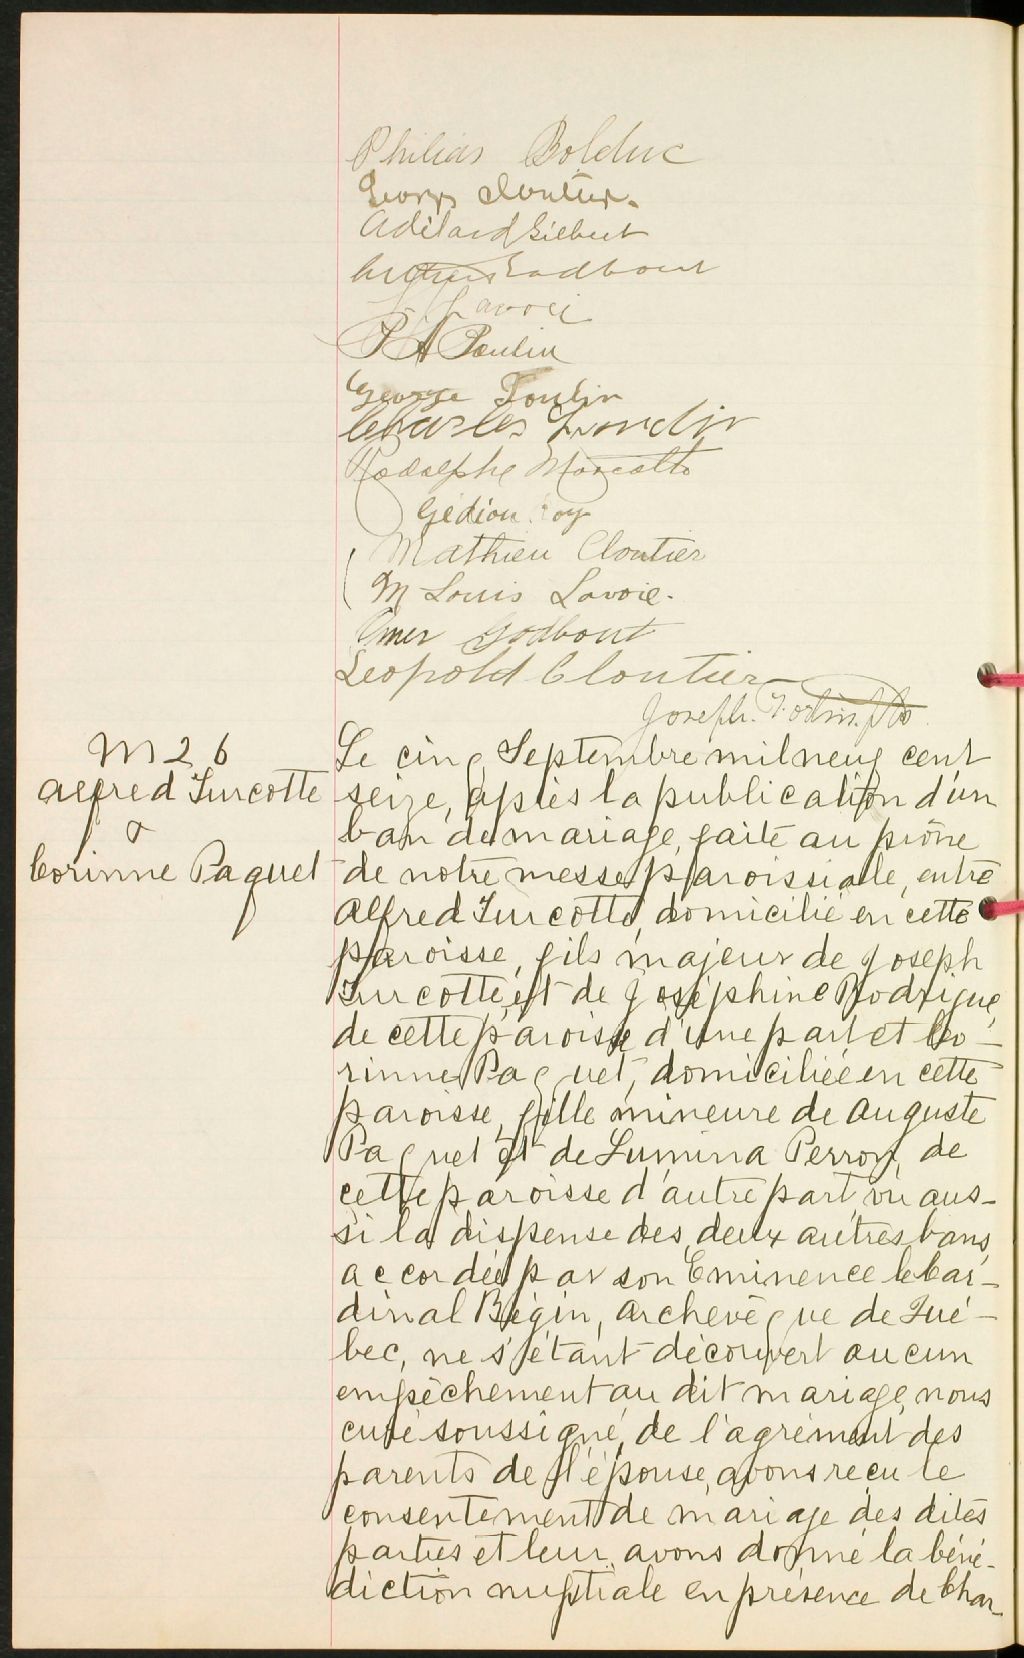 Philias Bolduc
Georges Cloutier.
Adélard Gilbert
Arthur Godbout
Lavoie
P A Poulin
George Poulin
Charles Grondin
Rodolphe Marcotte
Gédéon Roy
Mathieu Cloutier
M Louis Lavoie.
Omer Godbout
Leopold Cloutier
Joseph. Fortin. ptre
M 26
Alfred Turcotte
&
Corinne Paquet
Le cinq Septembre mil neuf cent
seize, après la publication d'un
ban de mariage, faite au prône
de notre messe paroissiale, entre
Alfred Turcotte, domicilié en cette
paroisse, fils majeur de Joseph
Turcotte, et de Joséphine Rodrigue,
de cette paroisse d'une part et Co-
rinne Paquet, domiciliée en cette
paroisse, fille mineure de Auguste
Paquet et de Lumina Perron, de
cette paroisse d'autre part, vu aus-
si la dispense des deux autres bans,
accordée par son Eminence le Car-
dinal Bégin, archevêque de Qué-
bec, ne s'étant découvert aucun
empêchement au dit mariage, nous
curé soussigné, de l'agrément des
parents de l'épouse, avons reçu le
consentement de mariage des dites
parties et leur avons donné la béné-
diction nuptiale en présence de Char-